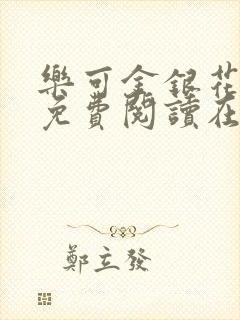 樂可金銀花
免費閱讀在
鄭立發